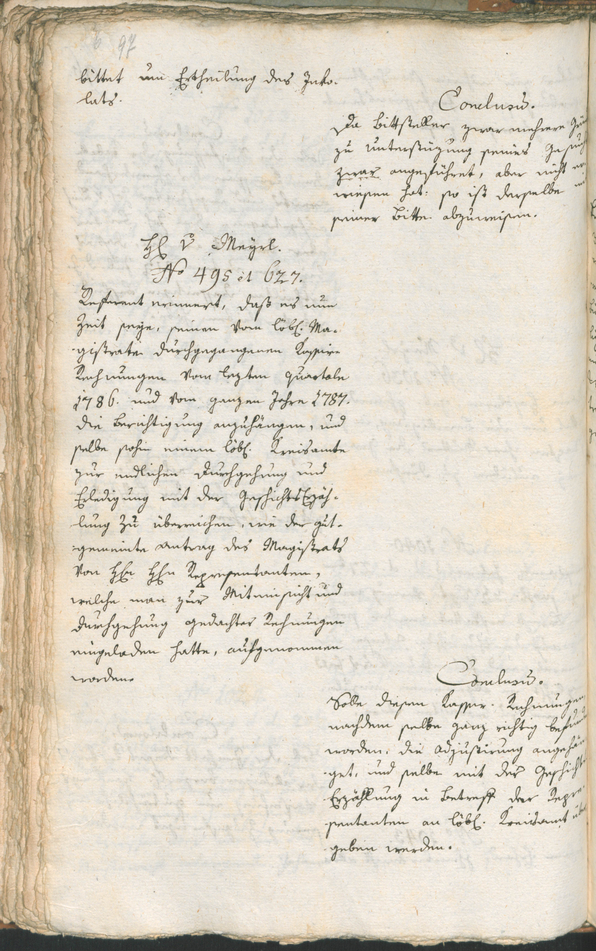 97
bittet um Ertheilung des Inko-
lats.
Conclusu͞.
Da Bittsteller zwar mehrere
zu Unterstüzung seines Gesuch
zwar angeführet, aber nicht er
wiesen hat: so ist derselbe
seiner Bitte abzuweisen.
H. v Meyrl.
No 495 et 627.
Referent erinnert, daß es nun
Zeit seye, seinen vom löbl. Ma-
gistrate durchgegangenen Kassier-
Rechnungen vom lezten Quartale
1786. und vom ganzen Jahre 1787.
die Berichtigung anzuhängen, und
selbe sohin einem löbl. Kreisamte
zur endlichen Durchgehung und
Erledigung mit der Geschichtserzäh-
lung zu übereichen, wie der gut-
gemeinte Antrag des Magistrats
von Hhn Hhn Representanten,
welche man zur Miteinsicht und
Durchgehung gedachter Rechnungen
eingeladen hatte, aufgenommen
worden.
Conclusu͞.
Solle diesen Kassier-Rechnungen
nachdem selbe ganz richtig befun
worden, die Adjustirung angehän
get, und selbe mit der Geschichts
Erzählung in Betreff der Repre
sentanten an löbl. Kreisamt über
geben werden.